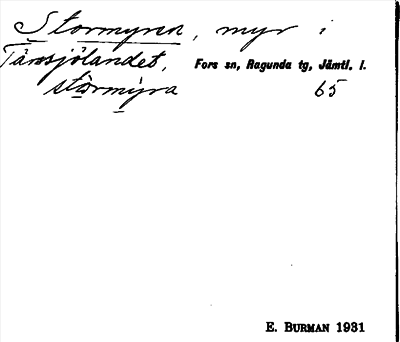 Stormyren, myr i
Tärnsjölandet, Fors sn, Ragunda tg, Jämtl. l.
stòrmy̆ra 65
E. BURMAN 1931